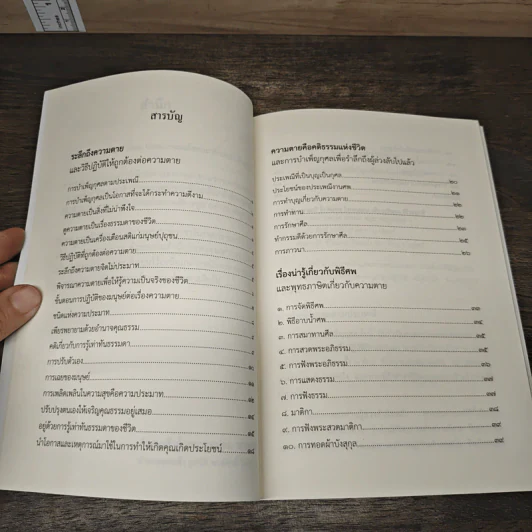 สารบัญ
ระลึกถึงความตาย
และวิธีปฏิบัติให้ถูกต้องต่อความตาย
การบำเพ็ญกุศลตามประเพณี
การบำเพ็ญกุศลเป็นโอกาสที่จะได้กระทำความดีงาม
ความตายเป็นสิ่งที่ไม่น่าพึงใจ
ความตายเป็นเรื่องธรรมดาของชีวิต
ความตายเป็นเครื่องเตือนสติแก่มนุษย์ปุถุชน
วิธีปฏิบัติที่ถูกต้องต่อความตาย
ระลึกถึงความตายจิตไม่ประมาท
พิจารณาความตายเพื่อให้รู้ความเป็นจริงของชีวิต
ขั้นตอนการปฏิบัติของมนุษย์ต่อเรื่องความตาย
ชนิดแห่งความประมาท
เพียรพยายามด้วยอำนาจคุณธรรม
คติเกี่ยวกับการรู้เท่าทันธรรมดา
การปรับตัวเอง
การเฉยของมนุษย์
การเพลิดเพลินในความสุขคือความประมาท
ปรับปรุงตนเองให้เจริญคุณธรรมอยู่เสมอ
อยู่ด้วยการรู้เท่าทันธรรมดาของชีวิต
นำโอกาสและเหตุการณ์มาใช้ในการทำให้เกิดคุณเกิดประโยชน์ ๑๘
ความตายคือคติธรรมแห่งชีวิต
และการบำเพ็ญกุศลเพื่อรำลึกถึงผู้ล่วงลับไปแล้ว
ประเพณีที่เป็นบุญเป็นกุศล ๒๐
ประโยชน์ของประเพณีงานศพ
การทำบุญเกี่ยวกับความตาย
การทำทาน ๒๒
การรักษาศีล ๒๓
ทำกรรมดีด้วยการรักษาศีล ๒๕
การภาวนา ๒๖
เรื่องน่ารู้เกี่ยวกับพิธีศพ
และพุทธภาษิตเกี่ยวกับความตาย
๑. การจัดพิธีศพ
๒. พิธีอาบน้ำศพ ๓๔
๓. การสมาทานศีล ๓๕
๔. การสวดพระอภิธรรม ๓๕
๕. การฟังพระอภิธรรม ๓๖
๖. การแสดงธรรม ๓๗
๗. การฟังธรรม ๓๗
๘. มาติกา ๓๘
๙. การฟังพระสวดมาติกา ๓๘
๑๐. การทอดผ้าบังสุกุล ๓๘